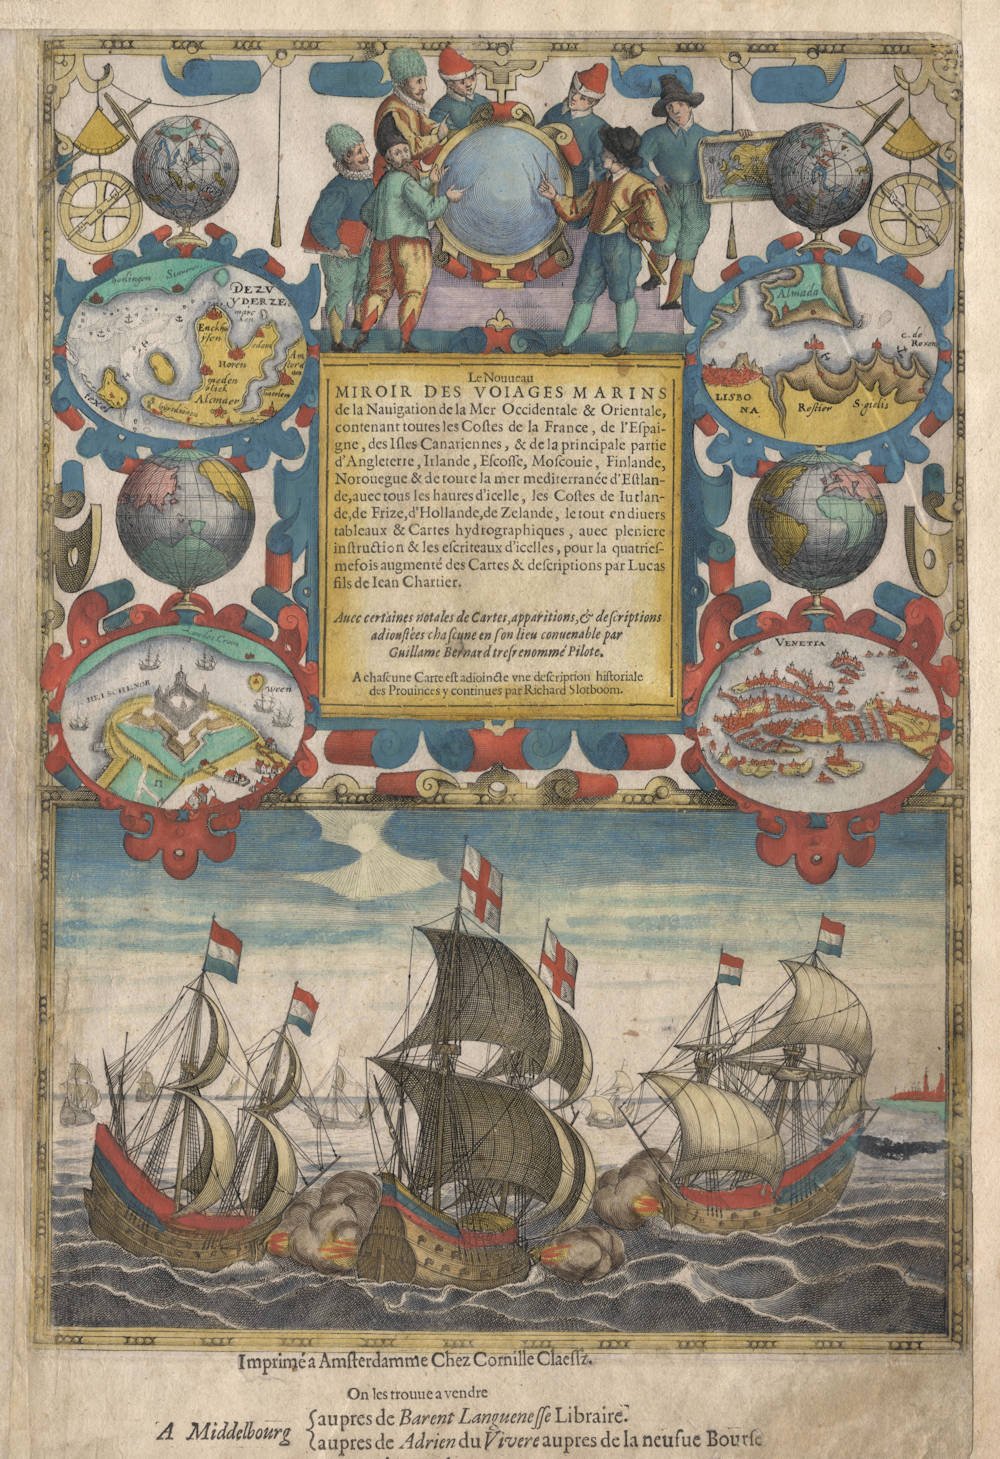 Le Nouueau
MIROIR DES VOIAGES MARINS
de la Nauigation de la Mer Occidentale & Orientale,
contenant toutes les Coſtes de la France, de l'Eſpai-
gne, des Iſles Canariennes, & de la principale partie
d'Angleterre, Irlande, Eſcoſſe, Moſcouie, Finlande,
Norouegue & de toute la mer mediterranée d'Eſtlan-
de, auec tous les haures d'icelle, les Coſtes de Iutlan-
de, de Frize, d'Hollande, de Zelande, le tout en diuers
tableaux & Cartes hydrographiques, auec pleniere
inſtruction & les eſcriteaux d'icelles, pour la quatrieſ-
mefois augmenté des Cartes & deſcriptions par Lucas
fils de Iean Chartier.
Auec certaines notales de Cartes, apparitions, & deſcriptions
adiouſtées chaſcune en ſon lieu conuenable par
Guillame Bernard treſrenommé Pilote.
A chaſcune Carte eſt adioincte vne deſcription hiſtoriale
des Prouinces y continues par Richard Slotboom.
DEZV
YDERZE
Enckhu
yſen
Horen
meden
blick
Alcmaer
Texel
Almada
LISBO
NA
Roſtier
S. gielis
C. de
Roxen
HELSCHENOR
Ween
VENETIA
Imprimé a Amſterdamme Chez Cornille Claeſſz.
On les trouue a vendre
A Middelbourg
aupres de Barent Langueneſſe Libraire.
aupres de Adrien du Vivere aupres de la neufue Bourſe